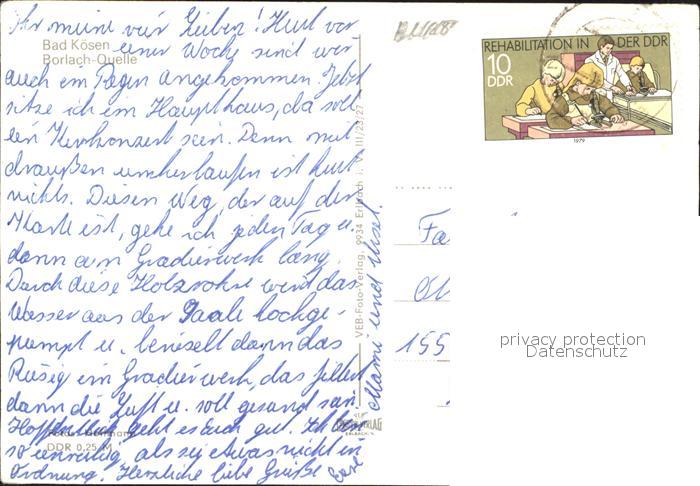 Ihr meine vier Lieben! Heut vor
Bad Kösen
Borlach-Quelle
einer Woche sind wir
auch im Regen angekommen. Jetzt
sitze ich im Haupthaus, da soll
ein Kurkonzert sein. Denn mit
draußen umherlaufen ist heut
nichts. Diesen Weg, der auf der
Karte ist, gehe ich jeden Tag u.
dann am Gradierwerk lang.
Durch diese Holzrohre wird das
Wasser aus der Saale hochge-
pumpt u. berieselt dann das
Reisig im Gradierwerk, das filtert
dann die Luft u. soll gesund sein.
Hoffentlich geht es Euch gut. Ich bin
DDR 0,25 M
so unruhig, als sei etwas nicht in
Ordnung. Herzliche liebe Grüße Eure
Mami und
VEB-Foto-Verlag, 9934 Erlbach i. V. III/23/27
REHABILITATION IN DER DDR
10
DDR
1979
Fa
155
privacy protection
Datenschutz